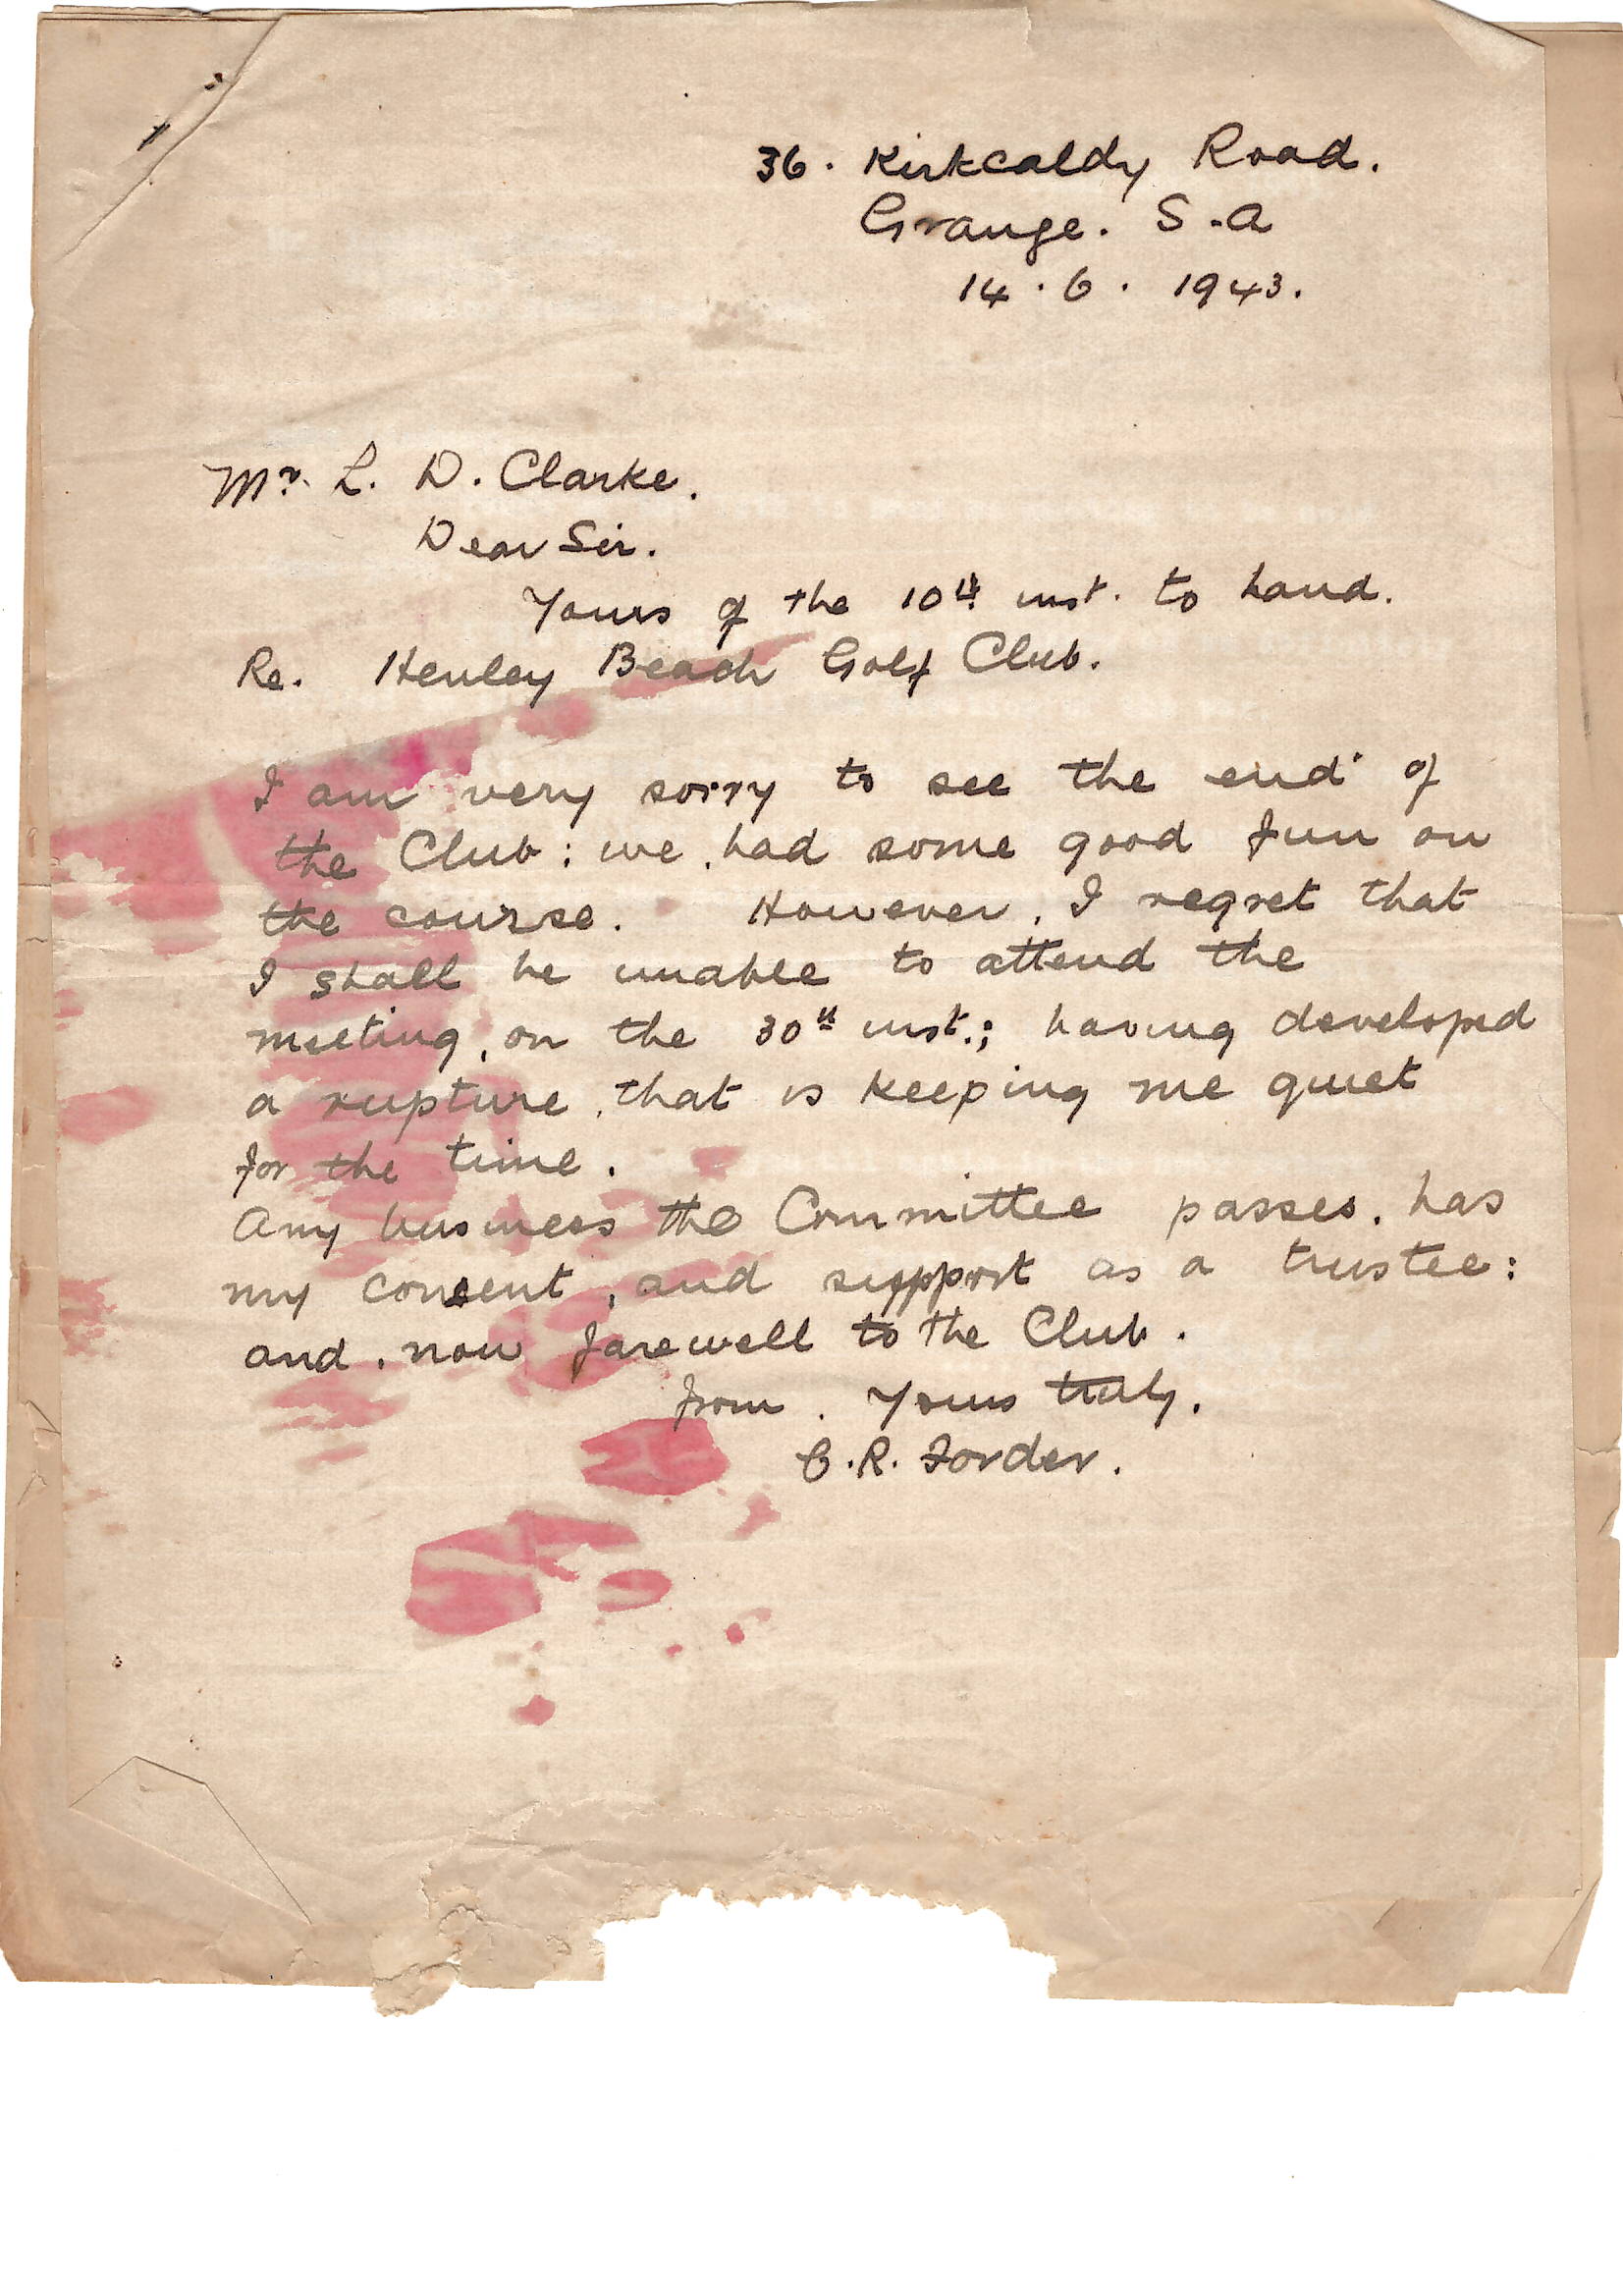 36. Kirkcaldy Road.
Grange. S.A
14.6.1943.
Mr. L. D. Clarke.
Dear Sir.
Yours of the 10th inst. to hand.
Re. Henley Beach Golf Club.
I am very sorry to see the end of
the Club: we had some good fun on
the course. However, I regret that
I shall be unable to attend the
meeting, on the 30th inst.; having developed
a rupture, that is keeping me quiet
for the time.
Any business the Committee passes, has
my consent, and support as a trustee:
and, now farewell to the Club.
from. Yours truly.
C.R. Forder.